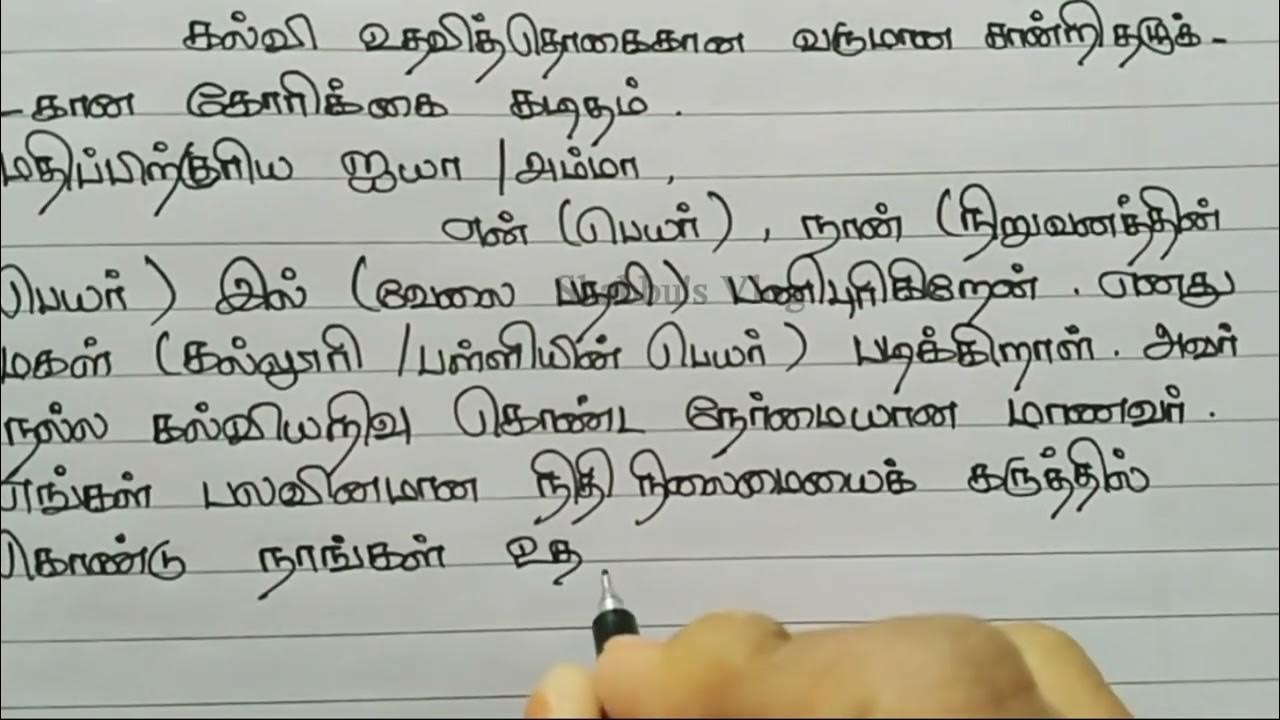 கல்வி உதவித்தொகைகான வருமான சான்றிதழுக்-
-கான கோரிக்கை கடிதம்.
மதிப்பிற்குரிய ஐயா / அம்மா,
என் (பெயர்), நான் (நிறுவனத்தின்
பெயர்) இல் (வேலை பதவி) பணிபுரிகிறேன். எனது
மகன் (கல்லூரி / பள்ளியின் பெயர்) படிக்கிறான். அவர்
நல்ல கல்வியறிவு கொண்ட நேர்மையான மாணவர்.
எங்கள் பலவீனமான நிதி நிலைமையைக் கருத்தில்
கொண்டு நாங்கள் உத